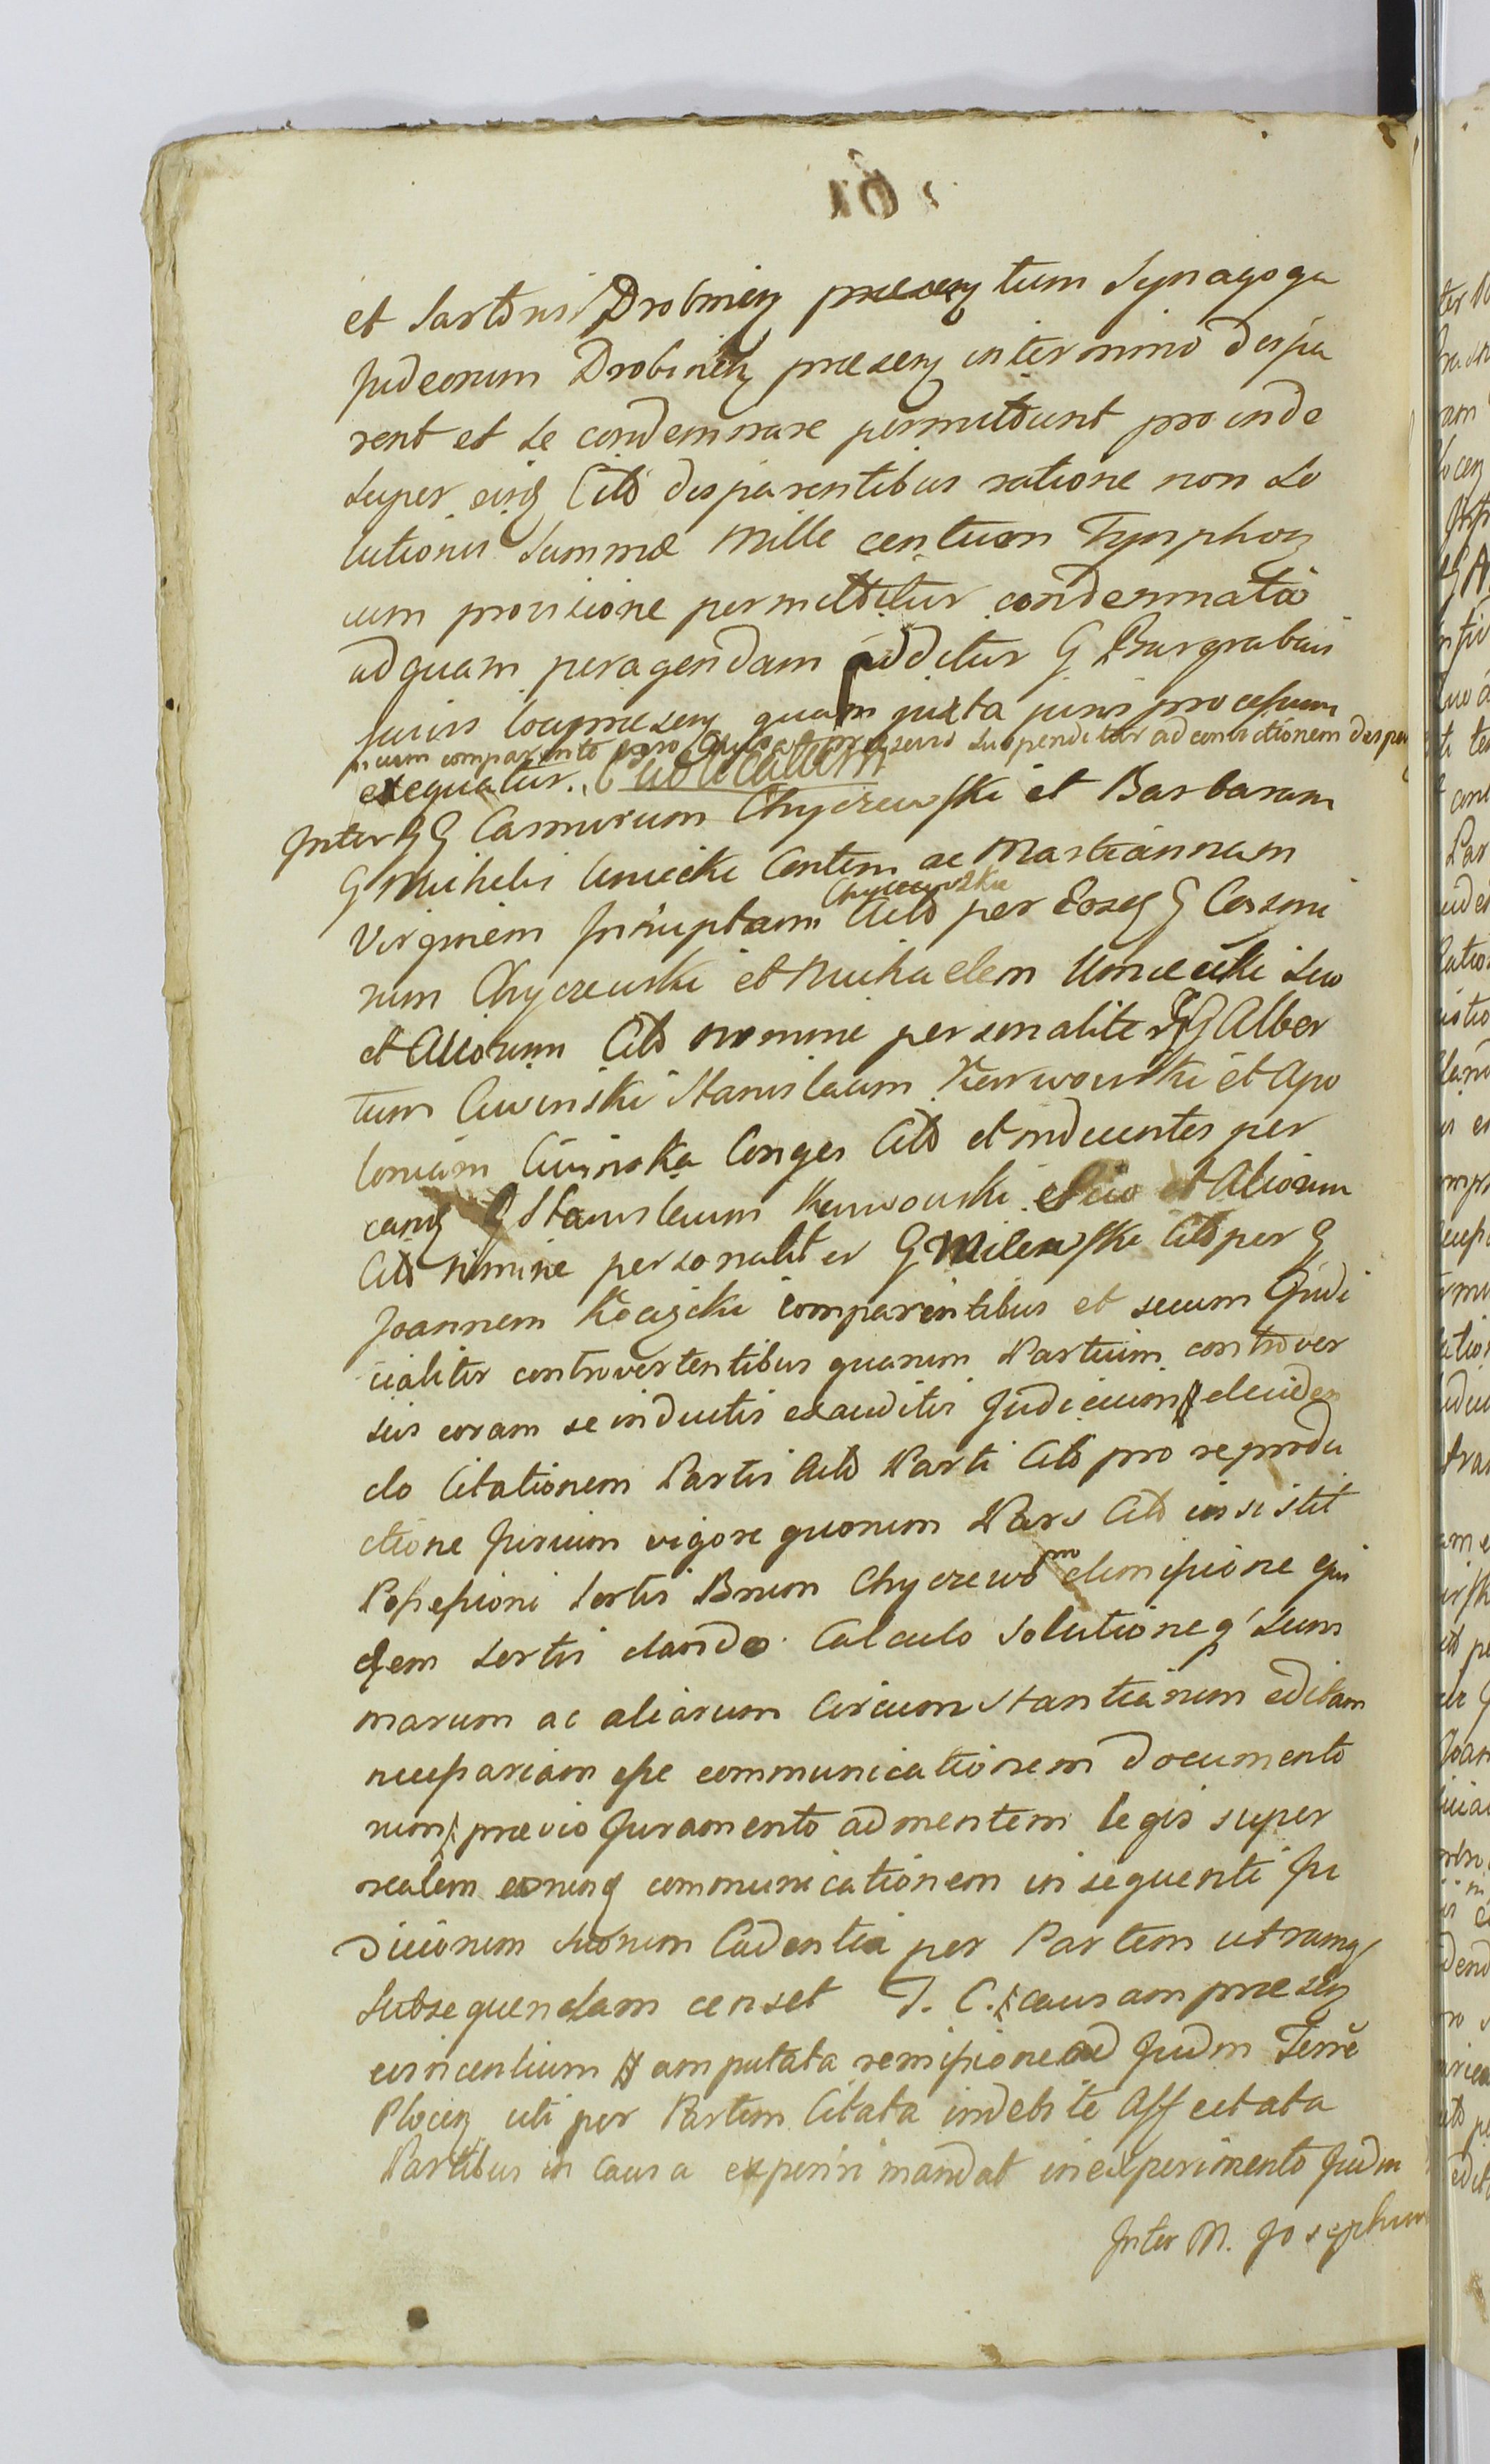 et Sartoris Drobinen praesen tum Synagoga
Judeorum Drobinen praesen in termino dispa
rent et se condemnare permittunt pro inde
super eisq Citt disparentibus ratione non so
lutionis Summae Mille centum Tymphon
cum provisione permittitur condemnata
ad quam peragendam additur G Burgrabius
juris loci praesen quam juxta juris processum
suspenditur ad convictionem dispa
exequatur. Publicatum
Inter GG Casimirum Chyczewski et Barbaram
G Michelis Umiecki Contem ac Mariannam
Chyczewskie
Virginem Innuptam Acto per Eosq G Casimi
rum Chyczewski et Michaelem Umiecki suo
et Aliorum Acto nomine personaliter GG Alber
tum Ciwinski Stanislaum Kerwowski et Apo
loniam Ciwinska Conges Citt et inducentes per
eanq G Stanislaum Kerwowski et suo et Aliorum
Citt nomine personaliter G Milewski Citt per G
Joannem Kocięcki comparentibus et secum Judi
cialiter controvertentibus quarum Partium controver
siis coram se inductis exauditis Judicium elucidan
do Citationem Partis Acto Parti Citt pro reprodu
ctione Jurium vigore quorum Pars Citt insistit
Possessioni Sortis Bnum Chyczewo pro dimissione ejus
dem sortis dando Calculo solutioneq sum
marum ac aliarum Circumstantiarum editam
necessariam esse communicationem documento
rum praevio Juramento ad mentem legis super
realem eorumq communicationem in sequenti Ju
diciorum suorum Cadentia per Partem utramq
subsequendam censet T. C. causam praesen
evincentium amputata remissione ad Judm Terrē
Plocen uti per Partem Citata indebite Affectata
Partibus in causa experiri mandat in experimento Judm
Inter M. Josephum